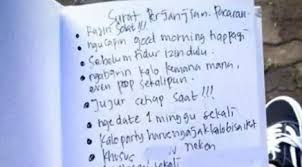 Surat Perjanjian Pacaran
• Rajin Salat!!!
• ngucapin good morning tiap pagi
• Sebelum tidur izin dulu.
• ngabarin kalo kemana mana,
even poop sekalipun.
• Jujur setiap saat!!!
• nge date 1 minggu sekali
• Kalo party harus ngajak kalo bisa ikut
• Khusus nekan